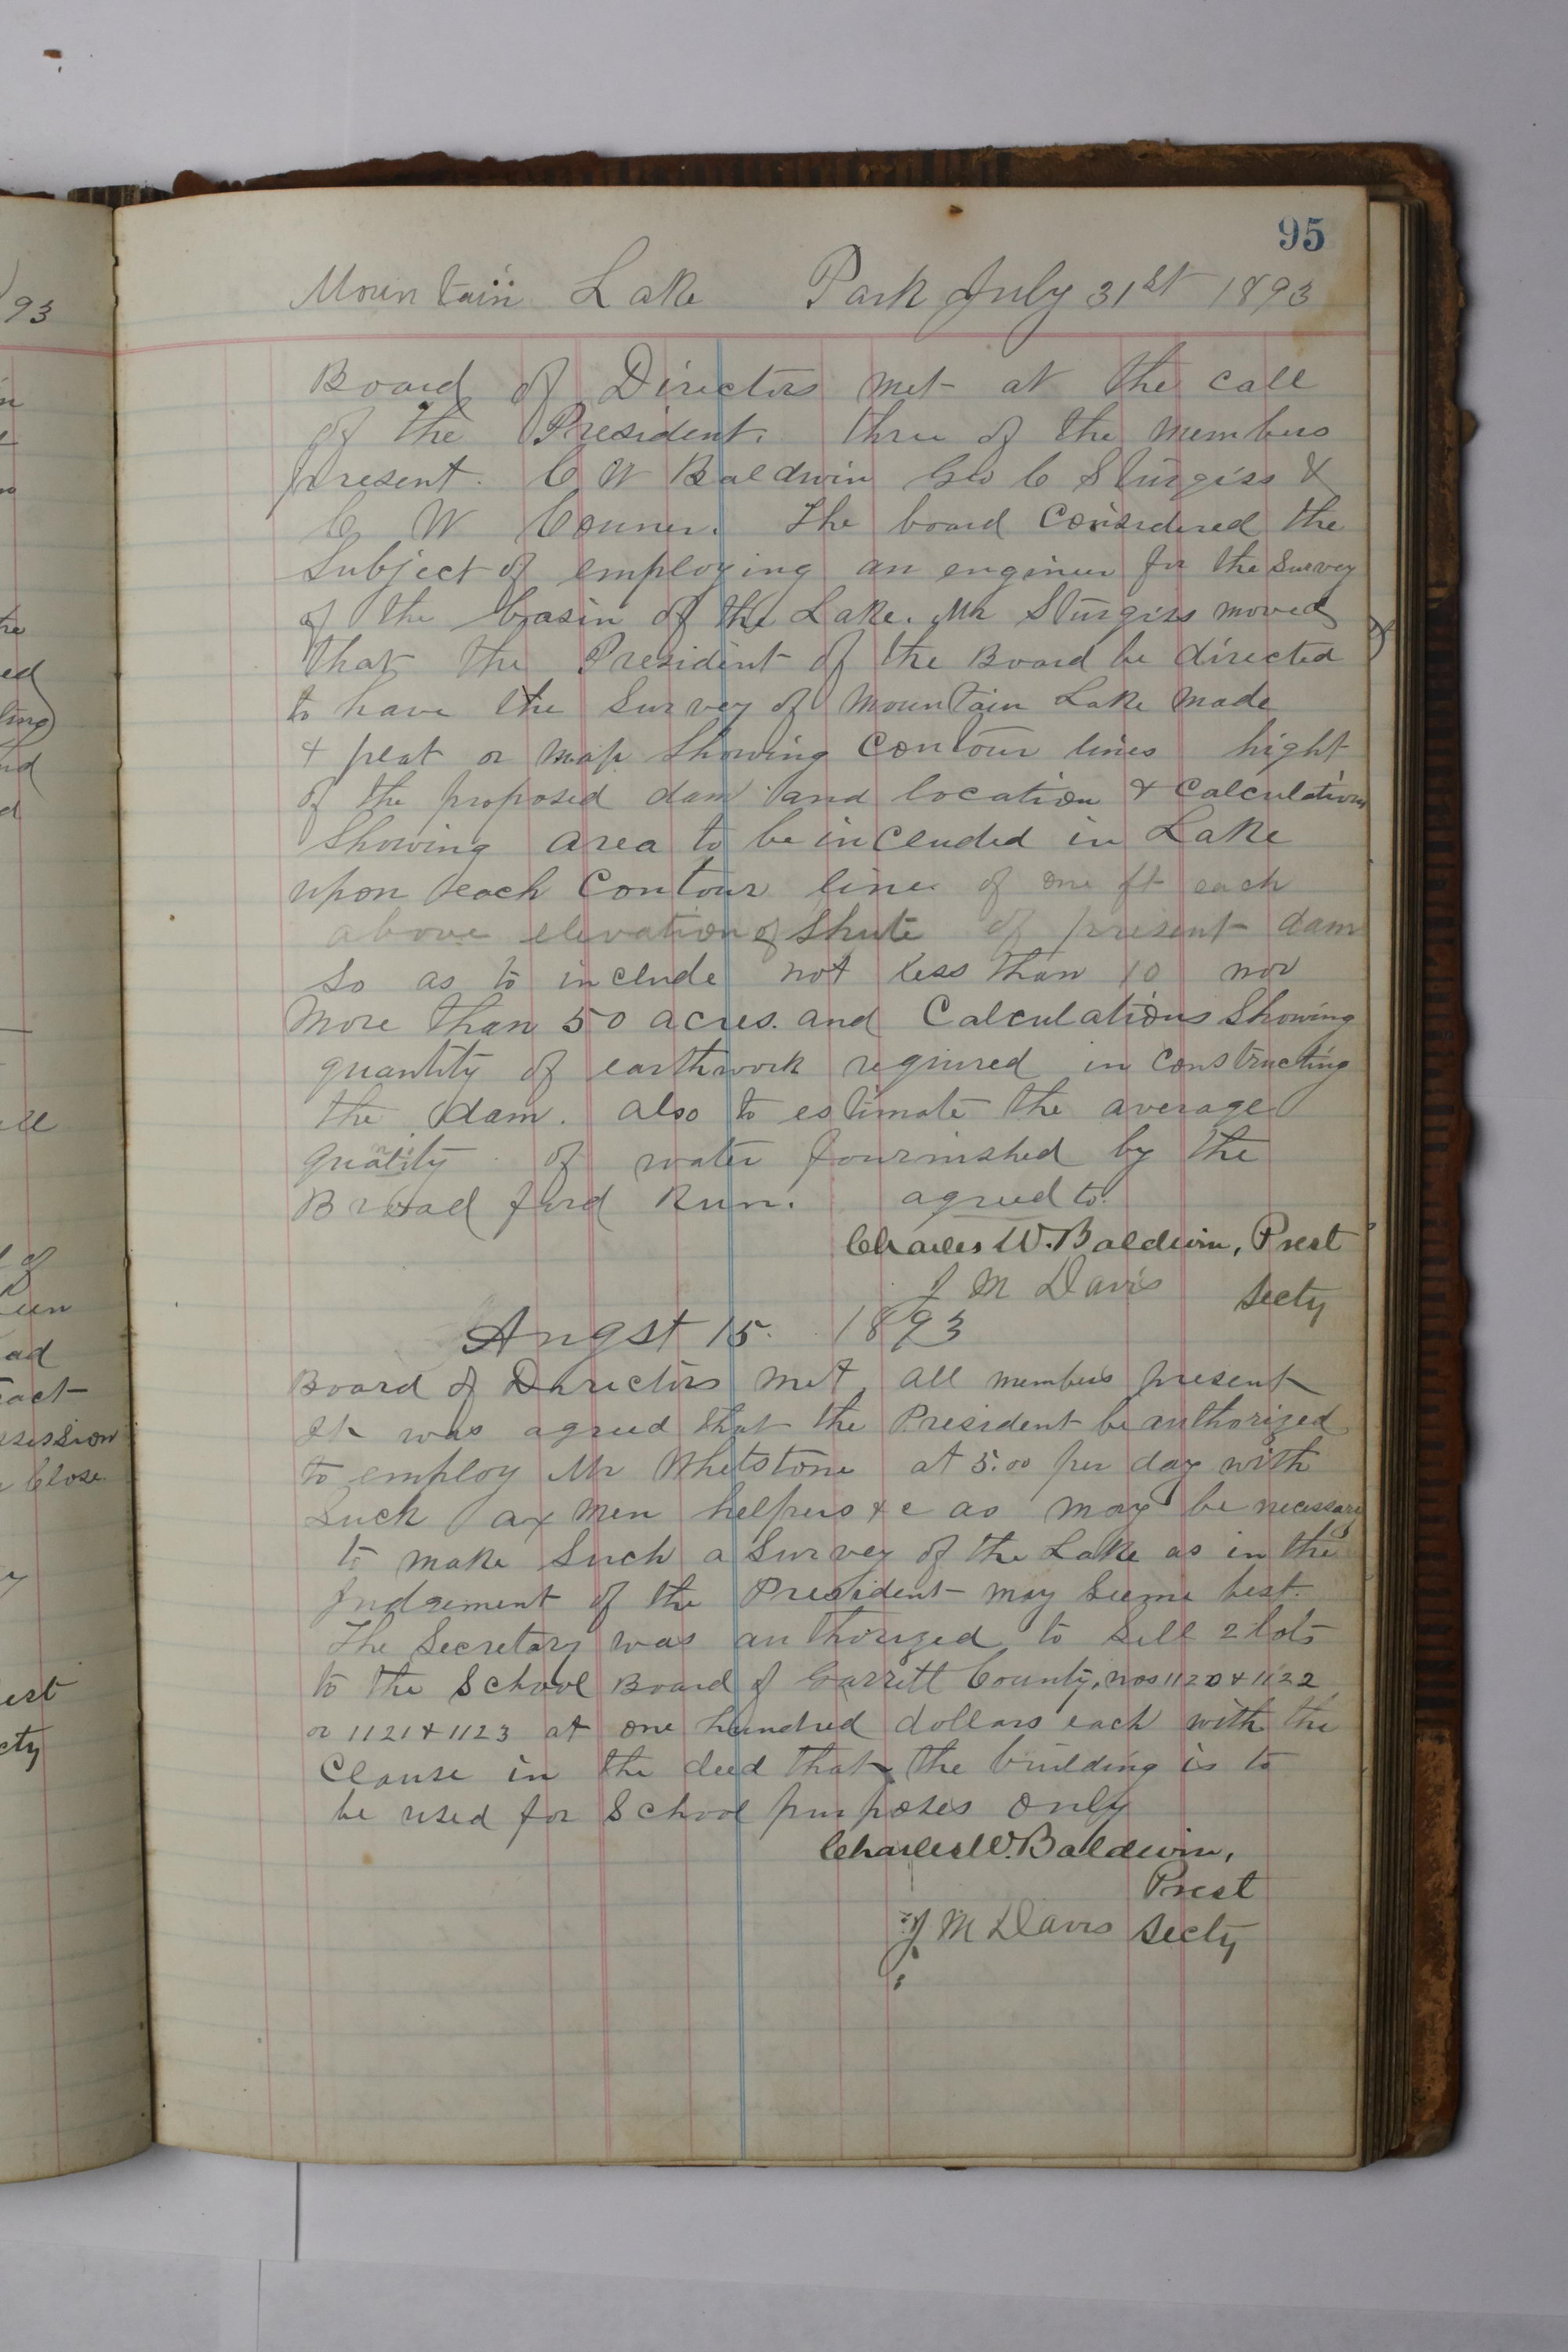 95
Mountain Lake Park July 31st 1893
Board of Directors met at the call
of the President. three of the members
present. C W Baldwin Geo C Sturgiss &
C W Conner. The board considered the
Subject of employing an engineer for the Survey
of the basin of the Lake. Mr Sturgiss moved
that the President of the Board be directed
to have the Survey of Mountain Lake made
& plat or map Showing Contour lines hight
of the proposed dam and location & Calculations
Showing area to be included in Lake
upon each Contour line of one ft each
above elevation of Shute of present dam
So as to include not less than 10 nor
More than 50 acres. and Calculations Showing
quantity of earthwork required in Constructing
the dam. also to estimate the average
quatity of water fournished by the
Broad ford Run. agreed to.
Charles W. Baldwin, Prest
J M Davis Secty
Angst 15. 1893
Board of Directors met, all members present
It was agreed that the President be authorized
to employ Mr Whetstone at 5.00 per day with
Such ax men helpers &c as may be necessary
to make Such a Survey of the Lake as in the
Judgement of the President may Seeme best.
The Secretary was authorized to Sell 2 lots
to the School Board of Garrett County, nos 1120 & 1122
or 1121 & 1123 at one hundred dollars each with the
Clause in the deed that the building is to
be used for School purposes only
Charles W. Baldwin,
Prest
J M Davis Secty
93
ed
ling
nd
d
of
Run
ad
act
ssession
Close
est
cty